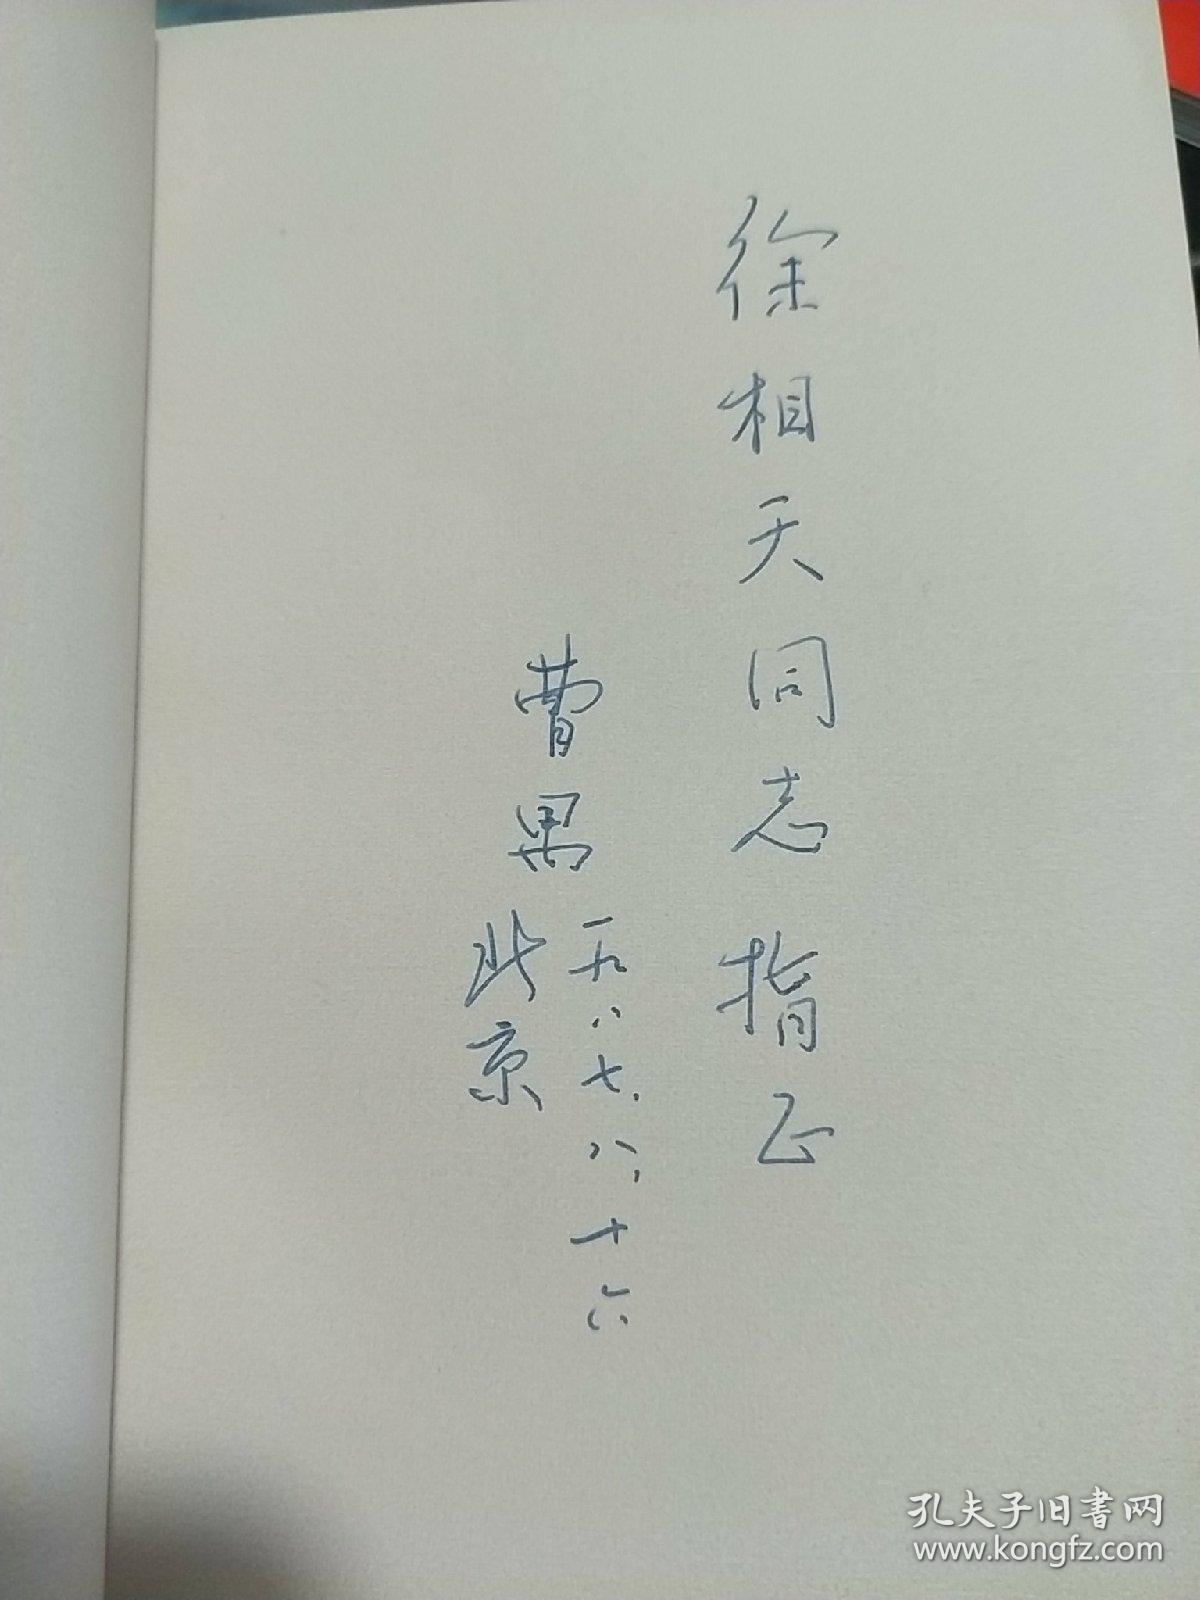 徐相天同志指正
曹禺
一九八七.八.十六
北京
孔夫子旧书网
www.kongfz.com